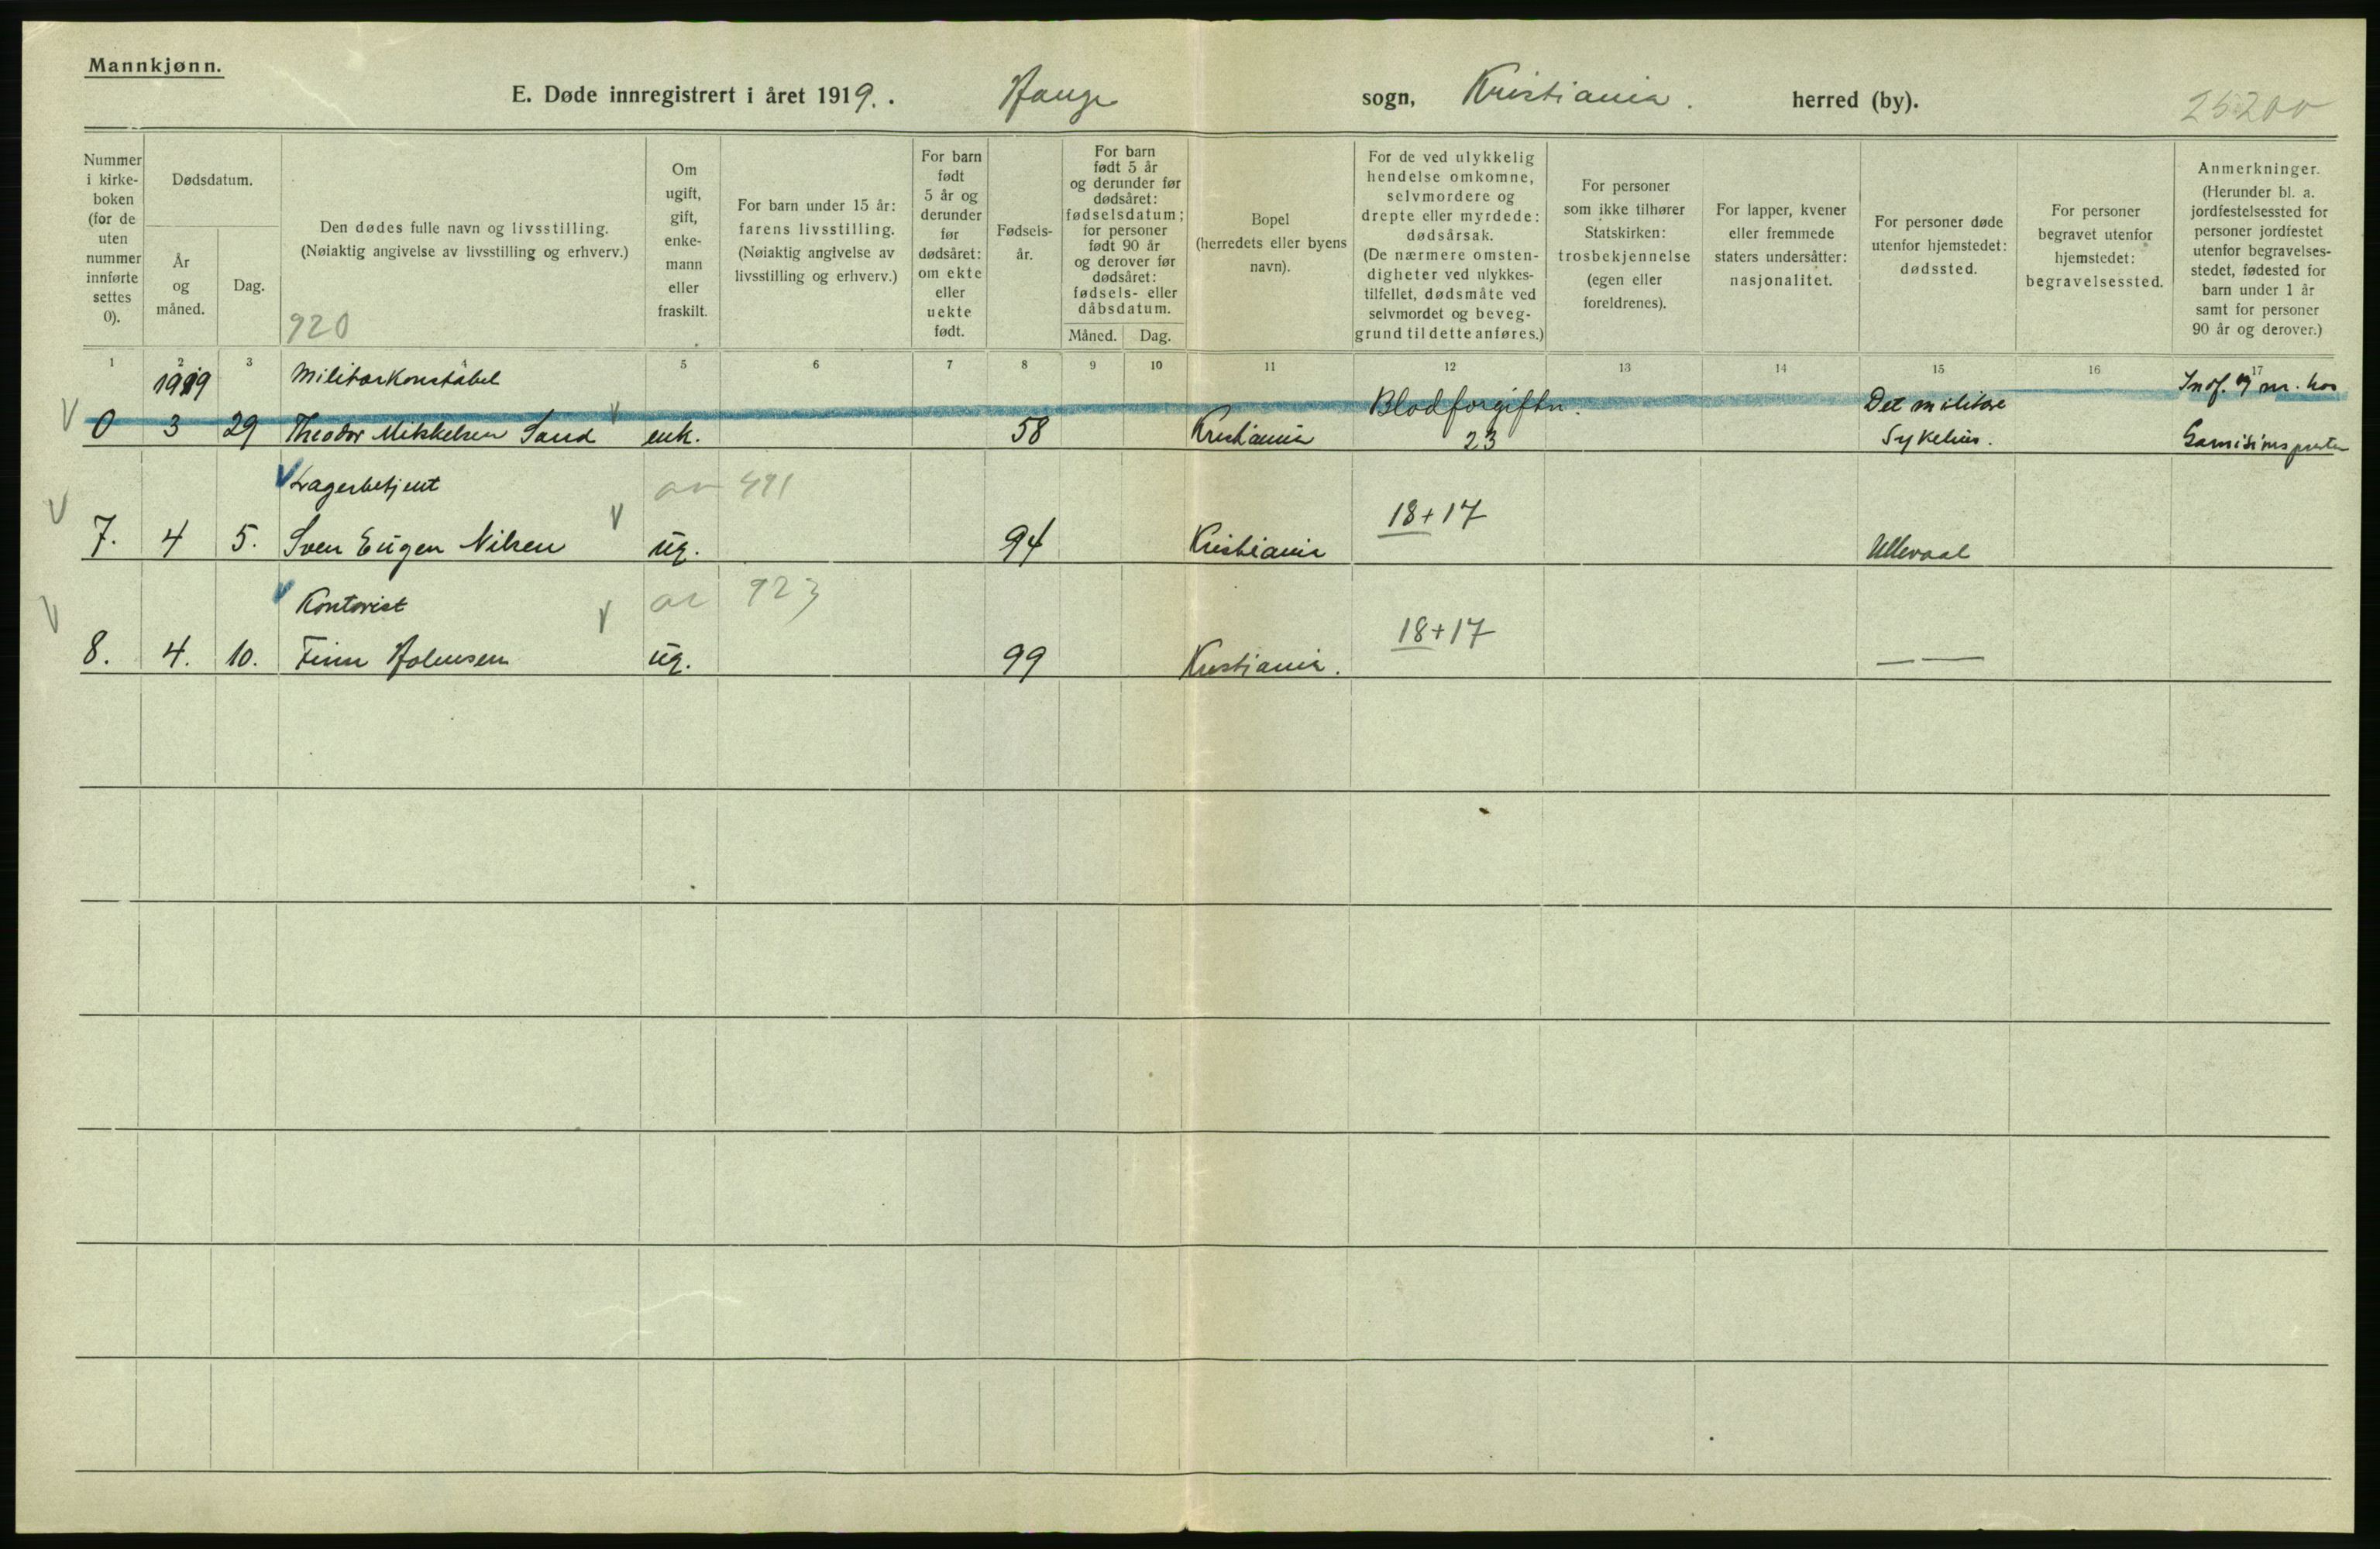 Mannkjønn.
E. Døde innregistrert i året 1919. . Hauge sogn, Kristiania. herred (by).
25200
Nummer i kirke- boken (for de uten nummer innførte settes 0).
Dødsdatum.
År og måned.
Dag.
Den dødes fulle navn og livsstilling.
(Nøiaktig angivelse av livsstilling og erhverv.)
920
Om ugift, gift, enke- mann eller fraskilt.
For barn under 15 år: farens livsstilling. (Nøiaktig angivelse av livsstilling og erhverv.)
For barn født 5 år og derunder før dødsåret: om ekte eller uekte født.
Fødsels- år.
For barn født 5 år og derunder før dødsåret: fødselsdatum; for personer født 90 år og derover før dødsåret: fødsels- eller dåbsdatum.
Måned. Dag.
Bopel (herredets eller byens navn).
For de ved ulykkelig hendelse omkomne, selvmordere og drepte eller myrdede: dødsårsak. (De nærmere omsten- digheter ved ulykkes- tilfellet, dødsmåte ved selvmordet og beveg- grund til dette anføres.)
For personer som ikke tilhører Statskirken: trosbekjennelse (egen eller foreldrenes).
For lapper, kvener eller fremmede staters undersåtter: nasjonalitet.
For personer døde utenfor hjemstedet: dødssted.
For personer begravet utenfor hjemstedet: begravelsessted.
Anmerkninger. (Herunder bl. a. jordfestelsessted for personer jordfestet utenfor begravelses- stedet, fødested for barn under 1 år samt for personer 90 år og derover.)
1 2 3 4 5 6 7 8 9 10 11 12 13 14 15 16 17
1919 Militærkonstabel Blodforgiftn. Det militære Inf. og nr. hos
0 3 29 Theodor Mikkelsen Sand enk. 58 Kristiania 23 Sykehus. Garnisionspresten
Lagerbetjent 491
18+17
7. 4 5. Sven Eugen Nilsen ug. 94 Kristiania Ullevaal
Kontorist 923
18+17
8. 4. 10. Finn Holmsen ug. 99 Kristiania. — —